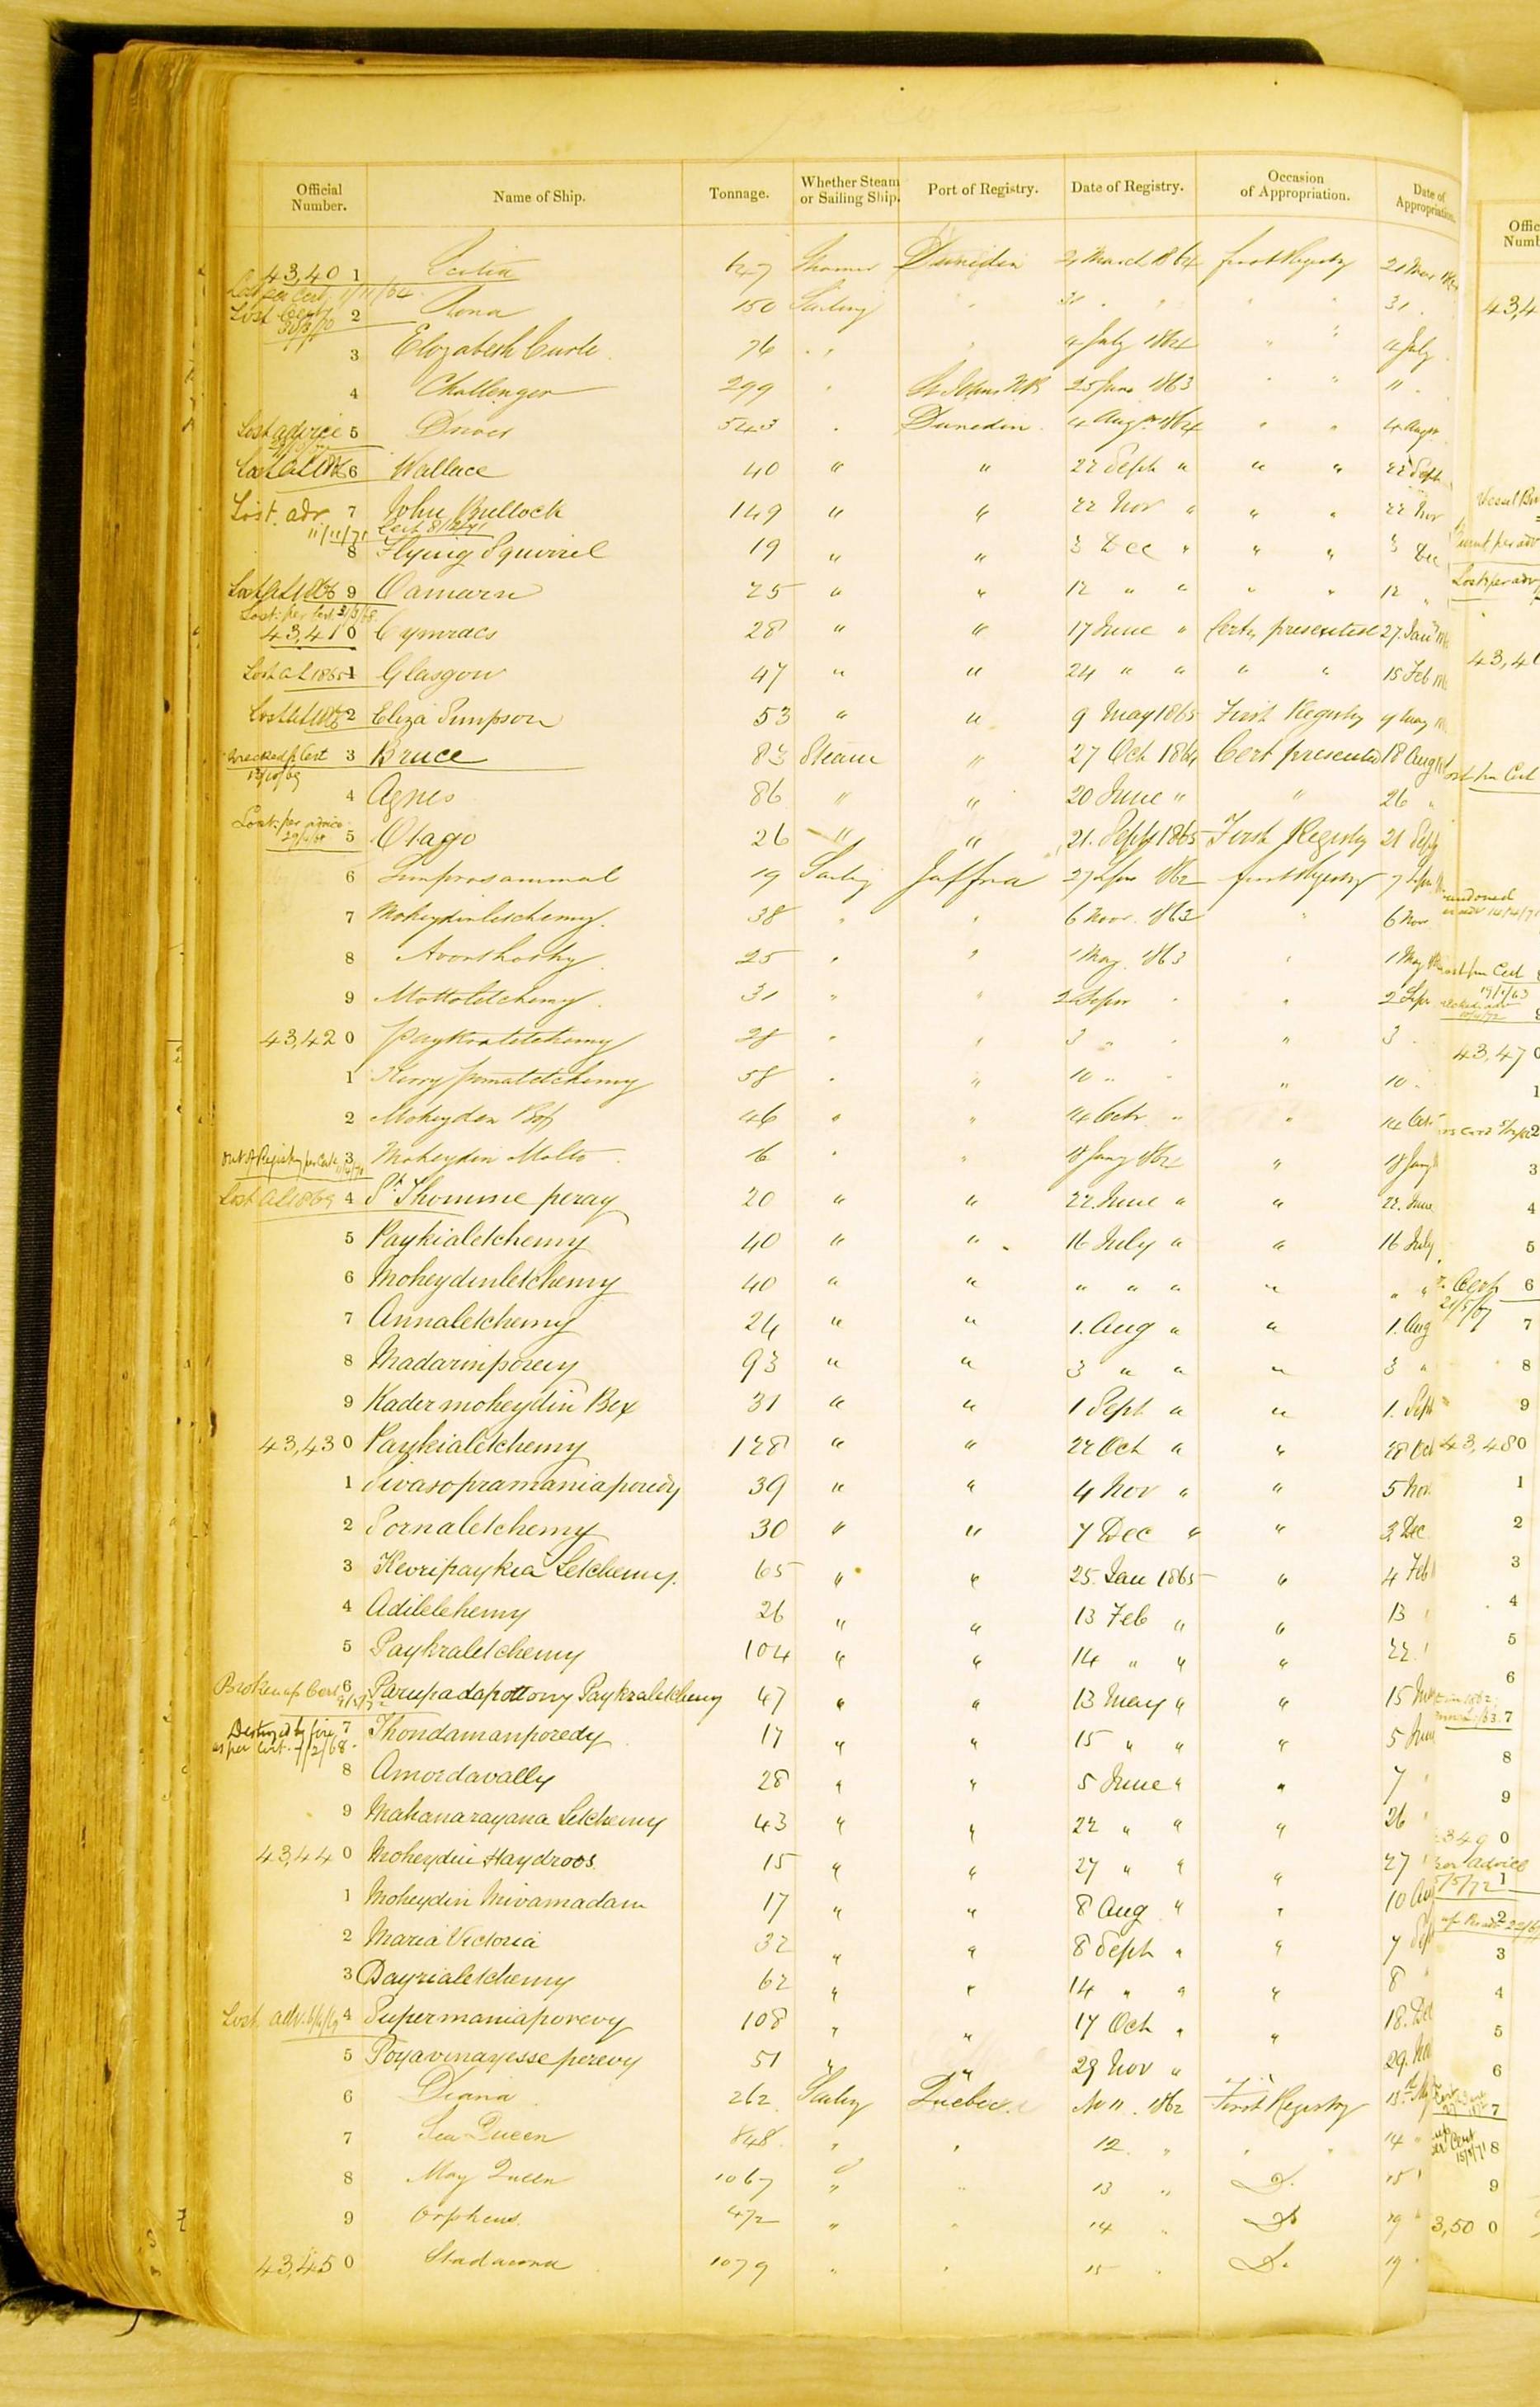 Official Number. Name of Ship. Tonnage. Whether Steam or Sailing Ship. Port of Registry. Date of Registry. Occasion of Appropriation. Date of Appropriation.
43,40 1 Scotia Steamer Dunedin March 1864 first Registry
Lost per Cert
2 Rona 150 Sailing " 31 " " " " 31
Lost Cert 30/3/70
3 Elizabeth Curle 76 " " 4 July 1864 " " 4 July
4 Challenger 299 " St Johns NB 25 June 1863 " " 11
Lost advice 5 Dover 543 " Dunedin 4 Aug 1864 " " 4 Augt
6 Wallace 40 " " 22 Sept " " " 22 Sept
Lost. adv 7 John Bullock 149 " " 22 Nov " " " 22 Nov
11/11/71 Cert 8/12/71
8 Flying Squirrel 19 " " 3 Dec " " " 3 Dec
9 Oamaru 25 " " 12 " " " " 12 "
Lost: per Cert
43,41 0 Cymraes 28 " " 17 June " Certe presented 27. Jan
Lost al 1865 1 Glasgow 47 " " 24 " " " " 15 Feb
2 Eliza Simpson 53 " " 9 May 1865 First Registry 9 May
Wrecked p Cert 3 Bruce 83 Steam " 27 Oct 1864 Cert presented 18 Aug
13/10/69
4 Agnes 86 " " 20 June " " 26 "
Lost: per advice
5 Otago 26 " " 21. Sept 1865 First Registry 21 Sept
6 19 Sailing Jaffna 27 Sepr 1862 first Registry 7 Sepr
7 Moheydinletchemy. 38 " " 6 Novr. 1862 " 6 Nov
8 25 " " 1 May 1863 " 1 May
9 Mottoletchemy 31 " " 2 Sepr " " 2 Sepr
43,42 0 28 " " 3 " " " 3
1 58 " " 10 " " " 10
2 46 " " 14 Octr " " 14 Oct
Out of Registry per Cert 3 Moheydin 16 " " 18 Jany 1864 " 18 Jany
Lost al 1869 4 St Thomme peray 20 " " 22 June " " 22. June
5 Paykialetchemy 40 " " 16 July " " 16 July
6 Moheydinletchemy 40 " " " " " " " "
7 Annaletchemy 24 " " 1. Aug " " 1. Aug
8 Madarinporevy 93 " " 3 " " " 3 "
9 Kadermoheydin Bex 31 " " 1 Sept " " 1. Sept
43,43 0 Paykialetchemy 128 " " 22 Oct " " 28 Oct
1 Sivasopramaniaporedy 39 " " 4 Nov " " 5 Nov.
2 Sornaletchemy 30 " " 7 Dec " " 3 Dec
3 Kevripaykia Letchemy. 65 " " 25. Jan 1865 " 4 Feb
4 Adiletchemy 26 " " 13 Feb " " 13 "
5 Paykraletchemy 104 " " 14 " " " 22 "
Broken up Cert 6 Parupadapottony Paykraletchemy 47 " " 13 May " " 15
Destroyed by fire 7 Thondamanporedy 17 " " 15 " " " 5 June
as per Cert. 7/2/68.
8 Amordavally 28 " " 5 June " " 7 "
9 Mahanarayana Letchemy 43 " " 22 " " " 26 "
43,44 0 Moheydin Haydroos 15 " " 27 " " " 27 "
1 Moheydin Mivamadam 17 " " 8 Aug " " 10 Au
2 Maria Victoria 32 " " 8 Sept " " 7 Sep
3 Dayrialetchemy 62 " " 14 " " " 8 "
Lost adv. 4 Supermaniaporevy 108 " " 17 Oct " " 18. Dec
5 Poyavinayesse perevy 51 " " 29 Nov " " 29. Nov
6 Diana 262 Sailing Quebec No 11. 1862 First Registry 13
7 Sea Queen 848 " " 12 " " " 14 "
8 May Queen 1067 " " 13 " Do. 15 "
9 Orpheus 472 " " 14 " Do 19 "
43,45 0 Stadacona 1079 " " 15 " Do. 19 "
Offic
Numb
43,4
Vessel
Lost per adv
43,46
Lost per Cert
43,47 0
1
2
3
4
5
Cert 6
7
8
9
43,48 0
1
2
3
4
5
6
7
8
9
349 0
per advice
5/5/72 1
2
3
4
5
6
7
8
9
3,50 0